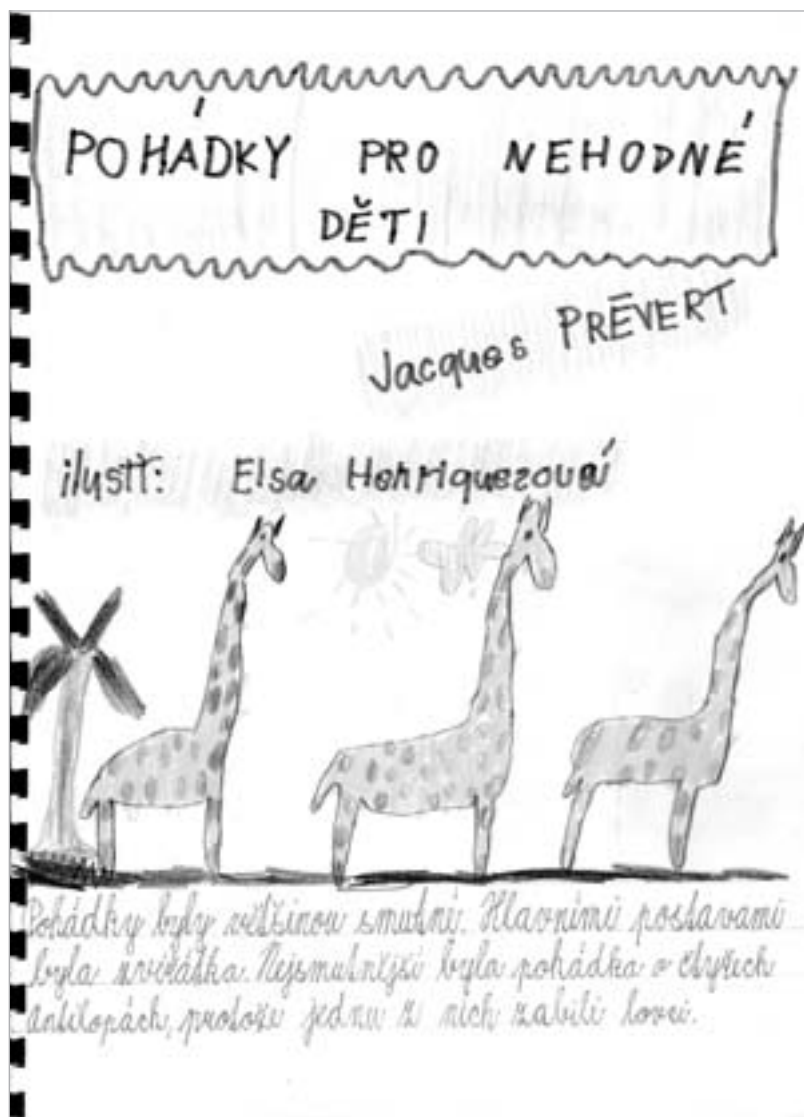 POHÁDKY PRO NEHODNÉ
DĚTI
Jacques PRĒVERT
ilustr: Elsa Henriquezová
Pohádky byly většinou smutní. Hlavními postavami
byla zvířátka. Nejsmutnější byla pohádka o čtyřech
antilopách, protože jednu z nich zabili lovci.